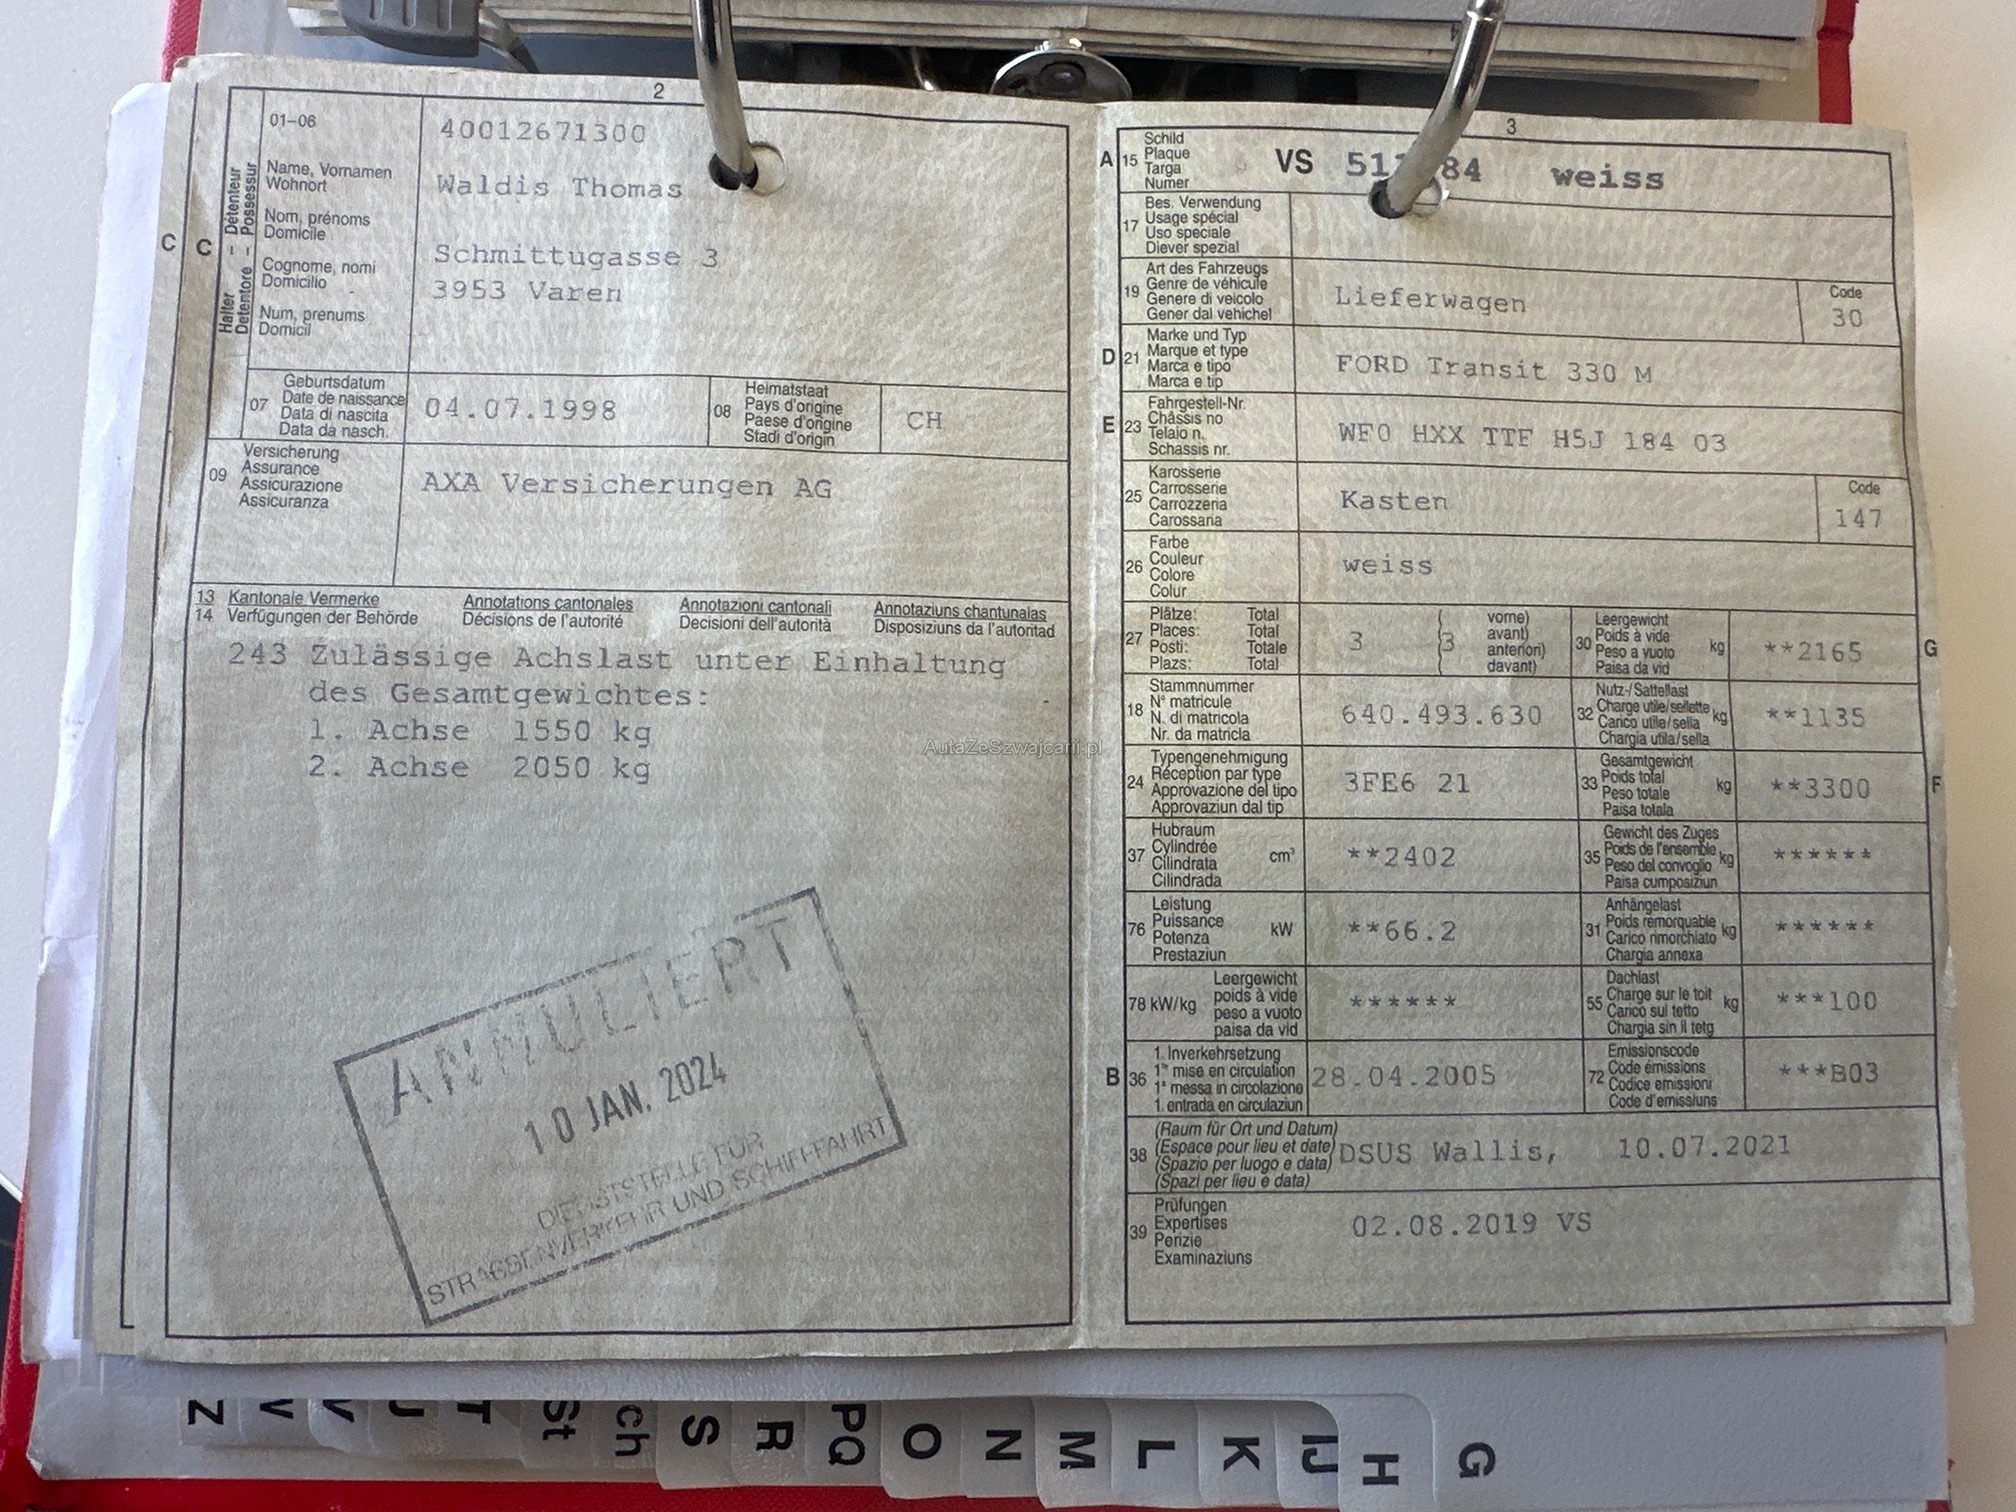 2
01-06
40012671300
Halter - Détenteur
Detentore - Possessur
C C
Name, Vornamen
Wohnort
Waldis Thomas
Nom, prénoms
Domicile
Schmittugasse 3
Cognome, nomi
Domicilio
3953 Varen
Num, prenums
Domicil
07
Geburtsdatum
Date de naissance
Data di nascita
Data da nasch.
04.07.1998
08
Heimatstaat
Pays d'origine
Paese d'origine
Stadi d'origin
CH
09
Versicherung
Assurance
Assicurazione
Assicuranza
AXA Versicherungen AG
13 Kantonale Vermerke Annotations cantonales Annotazioni cantonali Annotaziuns chantunalas
14 Verfügungen der Behörde Décisions de l'autorité Decisioni dell'autorità Disposiziuns da l'autoritad
243 Zulässige Achslast unter Einhaltung
des Gesamtgewichtes:
1. Achse 1550 kg
2. Achse 2050 kg
ANNULIERT
10 JAN. 2024
DIENSTSTELLE FÜR
STRASSENVERKEHR UND SCHIFFFAHRT
AutaZeSzwajcarii.pl
3
A 15
Schild
Plaque
Targa
Numer
VS 84 weiss
17
Bes. Verwendung
Usage spécial
Uso speciale
Diever spezial
19
Art des Fahrzeugs
Genre de véhicule
Genere di veicolo
Gener dal vehichel
Lieferwagen
Code
30
D 21
Marke und Typ
Marque et type
Marca e tipo
Marca e tip
FORD Transit 330 M
E 23
Fahrgestell-Nr.
Châssis no
Telaio n.
Schassis nr.
WF0 HXX TTF H5J 184 03
25
Karosserie
Carrosserie
Carrozzeria
Carossaria
Kasten
Code
147
26
Farbe
Couleur
Colore
Colur
weiss
27
Plätze: Total
Places: Total
Posti: Totale
Plazs: Total
3
(3
vorne)
avant)
anteriori)
davant)
30
Leergewicht
Poids à vide
Peso a vuoto
Paisa da vid
kg
**2165
G
18
Stammnummer
N° matricule
N. di matricola
Nr. da matricla
640.493.630
32
Nutz-/Sattellast
Charge utile/sellette
Carico utile/sella
Chargia utila/sella
kg
**1135
24
Typengenehmigung
Réception par type
Approvazione del tipo
Approvaziun dal tip
3FE6 21
33
Gesamtgewicht
Poids total
Peso totale
Paisa totala
kg
**3300
F
37
Hubraum
Cylindrée
Cilindrata
Cilindrada
cm³
**2402
35
Gewicht des Zuges
Poids de l'ensemble
Peso del convoglio
Paisa cumposiziun
kg
******
76
Leistung
Puissance
Potenza
Prestaziun
kW
**66.2
31
Anhängelast
Poids remorquable
Carico rimorchiato
Chargia annexa
kg
******
78 kW/kg
Leergewicht
poids à vide
peso a vuoto
paisa da vid
******
55
Dachlast
Charge sur le toit
Carico sul tetto
Chargia sin il tetg
kg
***100
B 36
1. Inverkehrsetzung
1re mise en circulation
1a messa in circolazione
1. entrada en circulaziun
28.04.2005
72
Emissionscode
Code émissions
Codice emissioni
Code d'emissiuns
***B03
38
(Raum für Ort und Datum)
(Espace pour lieu et date)
(Spazio per luogo e data)
(Spazi per lieu e data)
DSUS Wallis, 10.07.2021
39
Prüfungen
Expertises
Perizie
Examinaziuns
02.08.2019 VS
Z
T
St
ch
S
R
PQ
O
N
M
L
K
IJ
H
G